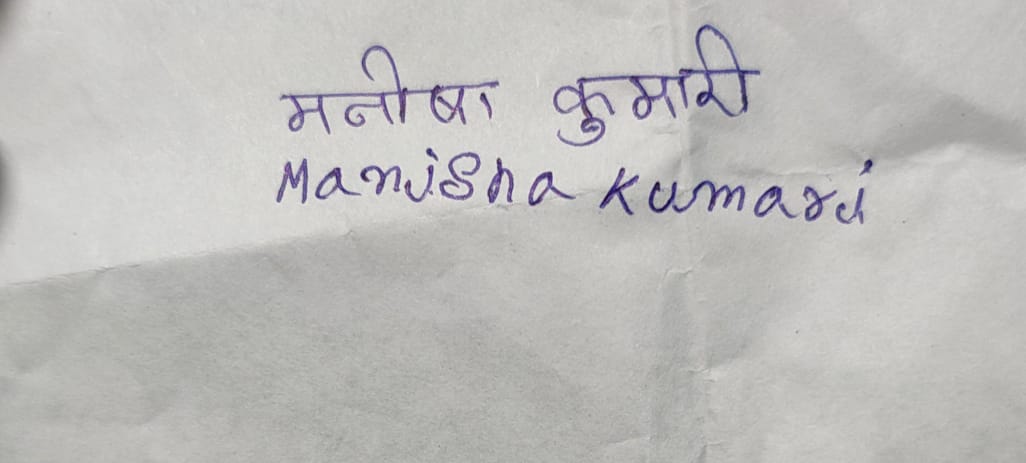 मनीषा कुमारी
Manisha Kumari